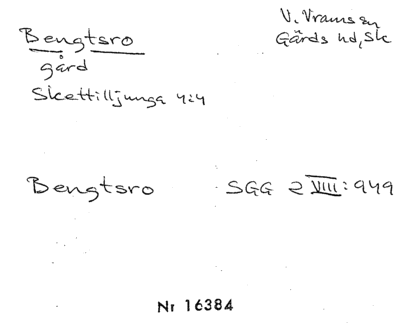 Bengtsro
V. Vrams sn
Gärds hd, Sk
gård
Skettilljunga 4:4
Bengtsro SGG 2 VIII: 949
Nr 16384